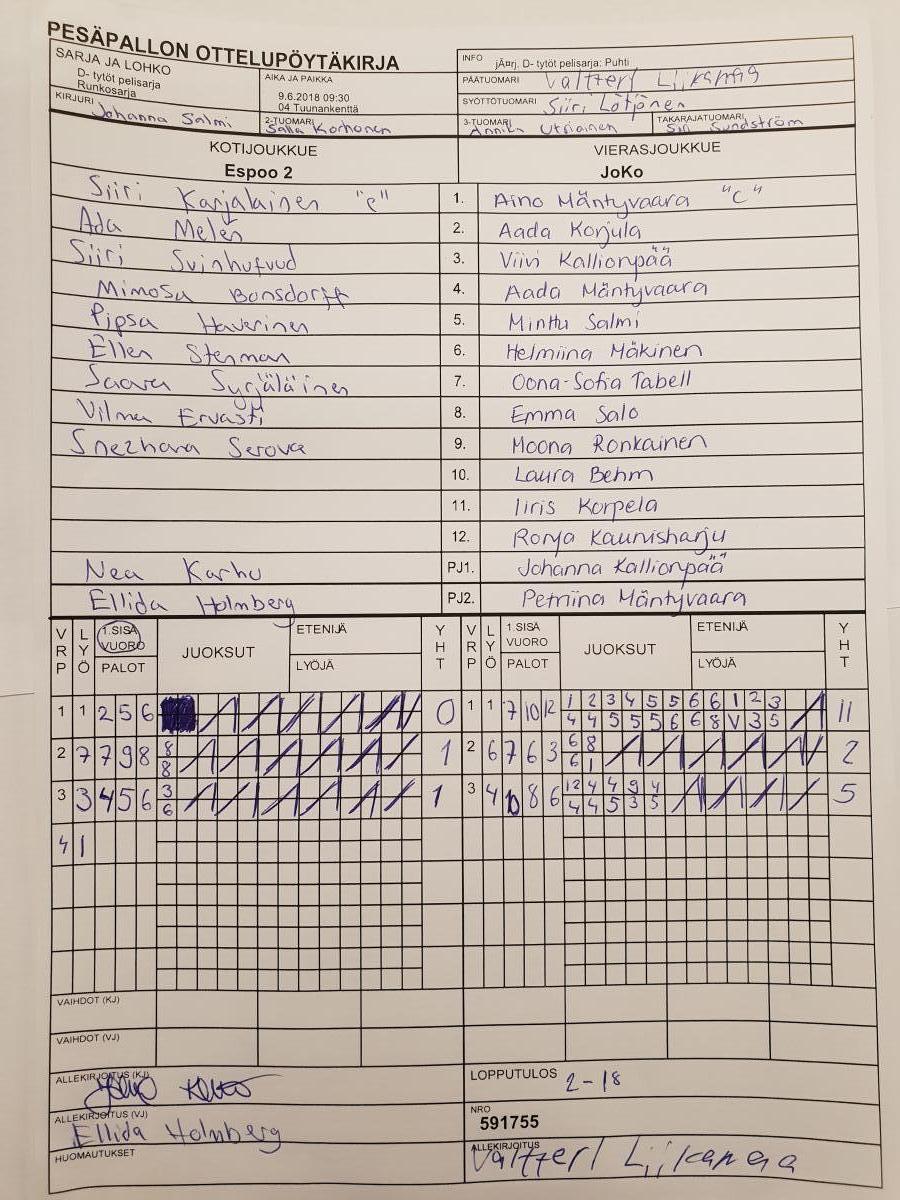 PESÄPALLON OTTELUPÖYTÄKIRJA
SARJA JA LOHKO
D- tytöt pelisarja
Runkosarja
AIKA JA PAIKKA
9.6.2018 09:30
04 Tuunankenttä
INFO jÃ¤rj. D- tytöt pelisarja: Puhti
PÄÄTUOMARI Valtteri Liikamaa
SYÖTTÖTUOMARI Siiri Lötjönen
KIRJURI Johanna Salmi
2-TUOMARI Salla Korhonen
3-TUOMARI Annika Utriainen
TAKARAJATUOMARI Siri Sundström
KOTIJOUKKUE VIERASJOUKKUE
Espoo 2 JoKo
Siiri Karjalainen "c" 1. Aino Mäntyvaara "C"
Ada Melén 2. Aada Korjula
Siiri Svinhufvud 3. Viivi Kallionpää
Mimosa Bonsdorff 4. Aada Mäntyvaara
Pipsa Haverinen 5. Minttu Salmi
Ellen Stenman 6. Helmiina Mäkinen
Saara Syrjäläinen 7. Oona-Sofia Tabell
Vilma Ervasti 8. Emma Salo
Snezhana Serova 9. Moona Ronkainen
10. Laura Behm
11. Iiris Korpela
12. Ronja Kaunisharju
Nea Karhu PJ1. Johanna Kallionpää
Ellida Holmberg PJ2. Petriina Mäntyvaara
VRP LYÖ 1.SISÄ VUORO PALOT JUOKSUT ETENIJÄ LYÖJÄ YHT VRP LYÖ 1.SISÄ VUORO PALOT JUOKSUT ETENIJÄ LYÖJÄ YHT
1 1 2 5 6 0 1 1 7 10 12 1 2 3 4 5 5 6 6 1 2 3 11
4 4 5 5 5 6 6 8 V 3 5
2 7 7 9 8 8 1 2 6 7 6 3 6 8 2
8 6 1
3 3 4 5 6 3 1 3 4 10 8 6 12 4 4 9 4 5
6 4 4 5 3 5
4 1
VAIHDOT (KJ)
VAIHDOT (VJ)
ALLEKIRJOITUS (KJ)
LOPPUTULOS 2-18
ALLEKIRJOITUS (VJ)
Ellida Holmberg
NRO
591755
HUOMAUTUKSET
ALLEKIRJOITUS
Valtteri Liikamaa